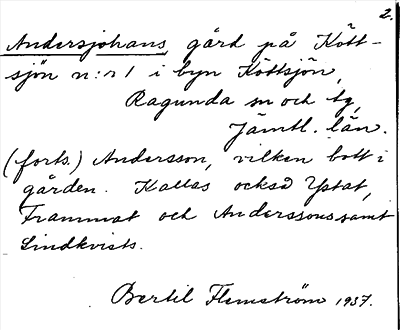 2.
Andersjohans gård på Kött-
sjön n:r 1 i byn Köttsjön,
Ragunda sn och tg,
Jämtl. län.
(forts.) Andersson, vilken bott i
gården. Kallas också Ystat,
Frammat och Anderssons samt
Lindkvists.
Bertil Flemström 1937.